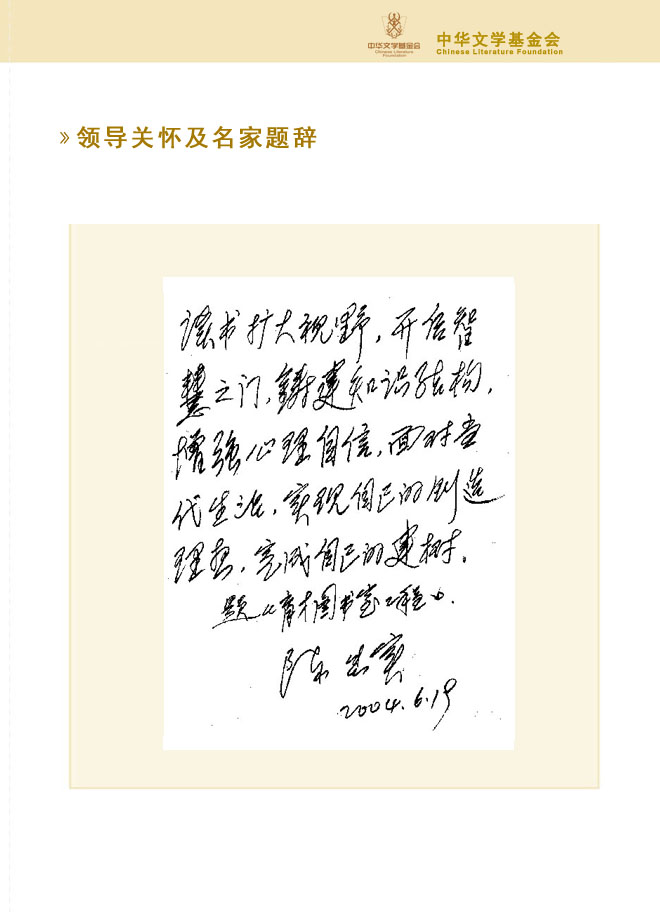 中华文学基金会
Chinese Literature
Foundation
中华文学基金会
Chinese Literature Foundation
» 领导关怀及名家题辞
读书扩大视野，开启智
慧之门，铸建知识结构，
增强心理自信，面对当
代生活，实现自己的创造
理想，完成自己的建树。
题《育才图书室工程》.
陈忠实
2004.6.19